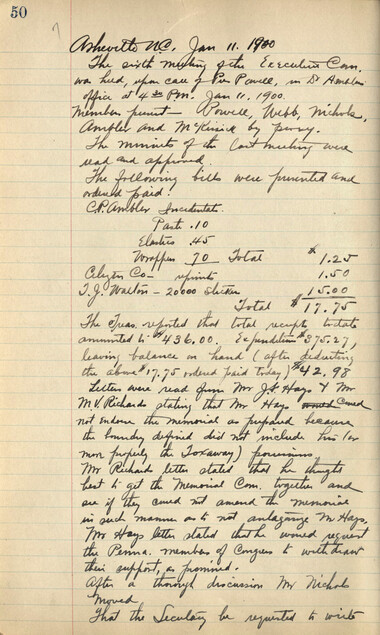 50
Asheville N.C. Jan 11. 1900
The sixth meeting of the Executive Com.
was held, upon call of Pres Powell, in Dr Ambler's
office at 4 00 P.m. Jan 11. 1900.
Members present — Powell, Webb, Nichols,
Ambler and McKissick by proxy.
The minutes of the last meeting were
read and approved.
The following bills were presented and
ordered paid:
C.P. Ambler Incidentals.
Paste .10
Elastics .45
Wrappers 70 Total $ 1.25
Citizen Co— reprints 1.50
T.J. Walton — 20000 15.00
Total $17.75
The Treas. reported that total receipts to date
amounted to $436.00. Expenditures $375.27,
leaving balance on hand (after deducting
the above $17.75 ordered paid today) $42.98
Letters were read from Mr J.F. Hays & Mr
M.V. Richards stating that Mr Hays could
not endorse the memorial as prepared because
the boundry defined did not include his (or
more properly the Toxaway) possessions
Mr Richards letter stated that he thought
best to get the Memorial Com. together and
see if they could not amend the memorial
in such manner as to not antagonize Mr Hays.
Mr Hays letter stated that he would request
the Penna. members of Congress to withdraw
their support, as promised.
After a through discussion Mr Nichols
moved
That the Secretary be requested to write